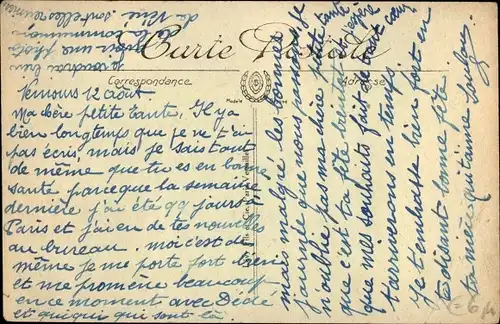 Carte Postale
Correspondance
Adresse
Ternous 12 août
Ma chère petite tante, Il y a
bien longtemps que je ne t'ai
pas écris, mais je sais tout
de même que tu es en bonne
santé parce que la semaine
dernière j'ai été qq jours
Paris et j'ai eu de tes nouvelles
au bureau. moi c'est de
même je me porte fort bien
et me promène beaucoup
en ce moment avec Dédé
et quiqui qui sont là.
mais malgré les bonnes
journées que nous passons je
n'oublie pas ma chère petite tante
que c'est ta fête bientôt j'espère
que mes souhaits fait de tout cœur
t'arriverons en temps
Je t'embrasse bien fort en
te disant bonne fête
ta nièce qui t'aime
Je voudrai bien
avoir une photo
de la communion